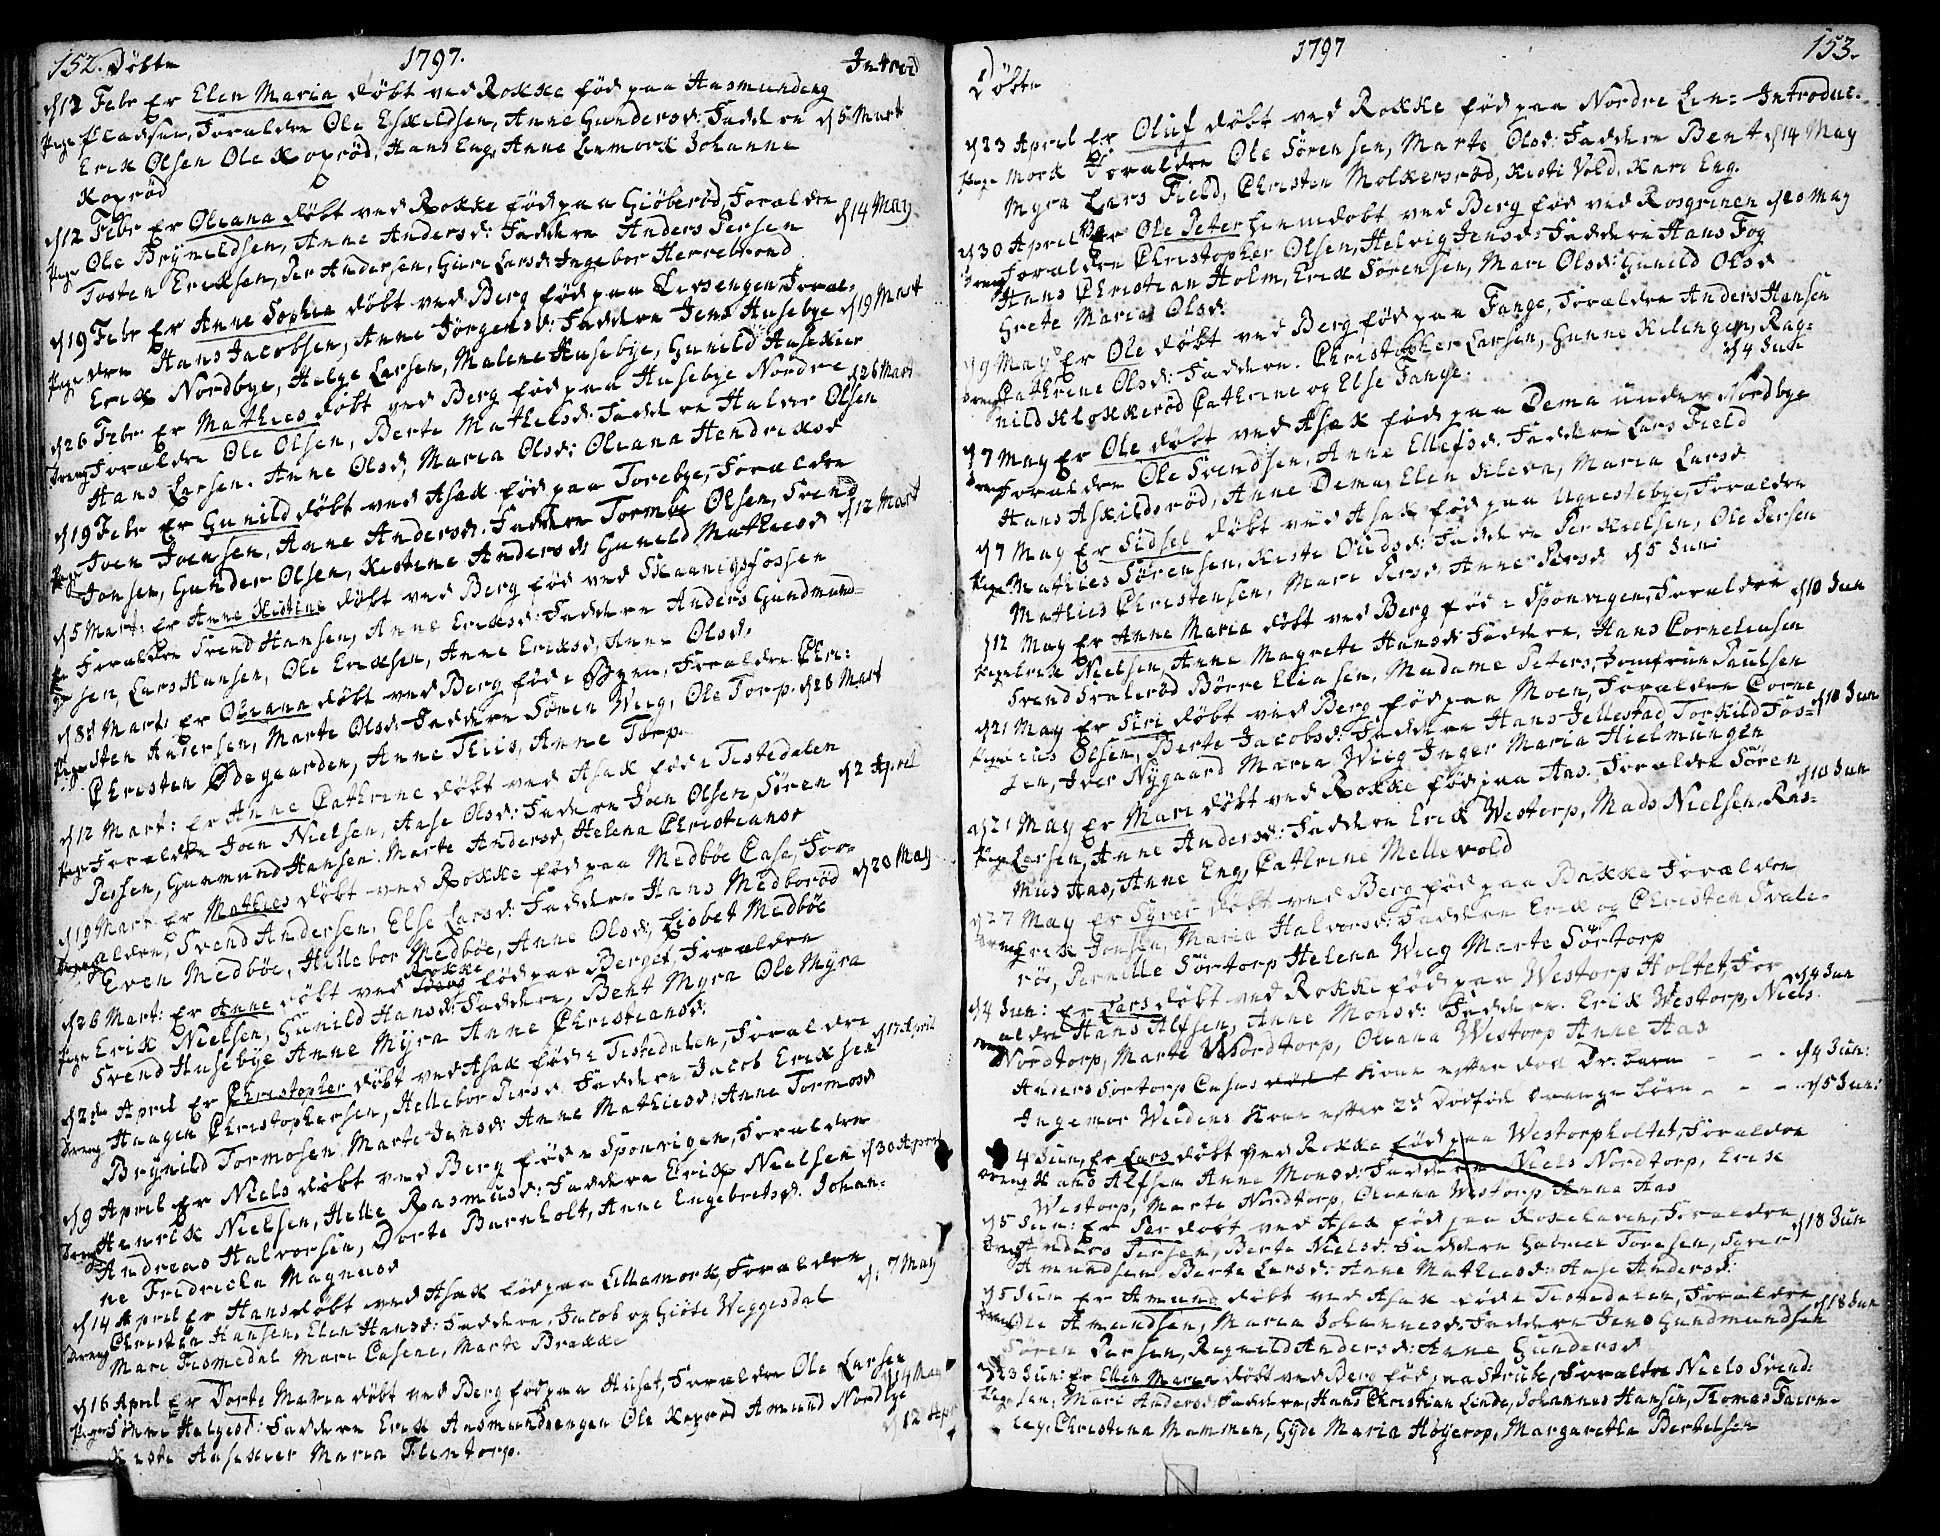 152. Döbte 1797. Introd
d 12 Febr Er Elen Maria döbt ved Rokke föd paa Aasmundeng
Pige Pladsen, Foraldre Ole Eskildsen, Anne Gundersd: Faddere d 5 Mart
Erik Olsen Ole Koprød, Hans Eng, Anne Lenmork Johanne
Koprød
d 12 Febr Er Oleana döbt ved Rokke föd paa Giöberød, Foraldre
Pige Ole Brÿnildsen, Anne Andersd: Faddere Anders Persen d 14 May
Tosten Eriksen, Per Andersen, Guri Larsd: Ingebor Herrebrond
d 19 Febr Er Anne Sophia döbt ved Berg föd paa Livsengen, Foral-
Pige dre Hans Jacobsen, Anne Jörgensd: Faddere Jens Husebye d 19 Mart
Erik Nordbye, Helge Larsen, Malene Husebye, Gunild Husekier
d 26 Febr Er Mathies döbt ved Berg föd paa Husebye Nordre d 26 Mart
Dreng Foraldre Ole Olsen, Berte Mathiesd: Faddere Halvor Olsen
Hans Larsen. Anne Olsd, Maria Olsd: Oleana Hendriksd
d 19 Febr Er Gunild döbt ved Asak föd paa Torebye, Foraldre
Pige Joen Joensen, Anne Andersd: Faddere Tormo Olsen, Svend d 12 Mart
Jonsen, Gunder Olsen, Kestene Andersd: Gunild Mathiesd
d 5 Mart: Er Anne Kistine döbt ved Berg föd ved Skaanigsfossen
Pi Foraldre Svend Hansen, Anne Eriksd: Faddere Anders Gundmund-
ge sen, Lars Hansen, Ole Eriksen, Anne Eriksd, Anne Olsd.
d 8d Mart: Er Oleana döbt ved Berg föd i Byen, Foraldre Chri:
Pige sten Andersen, Marte Olsd: Faddere Sören Wiig, Ole Torp. d 28 Mart
Christen Ødegaarden, Anne Thiis, Anne Torp.
d 12 Mart: Er Anne Cathrine döbt ved Asak föd i Tistedalen
Pige Foraldre Joen Nielsen, Anse Olsd: Faddere Joen Olsen, Sören d 2 April
Pessen, Gunmund Hansen: Marte Andersd, Helena Christiansd
d 19 Mart Er Mathies döbt ved Rokke föd paa Medböe Casa, For-
Dreng aldre, Svend Andersen, Else Larsd: Faddere Hans Medborød d 20 May
Even Medböe, Hellebor Medböe, Anne Olsd, Lisbet Medböe
Rokke
d 26 Mart: Er Anne döbt ved Berg föd paa Berget, Foraldre
Pige Erik Nielsen, Gunild Hansd: Faddere, Bent Myra Ole Myra
Svend Husebye Anne Myra Anne Christiansd:
d 2den April Er Christopher döbt ved Asak föd i Tistedalen, Foraldre d 17 April
Dreng Haagen Christophersen, Hellebor Persd: Faddere Jacob Eriksen
Brynild Tormosen, Marte Jensd: Anne Mathiesd: Anne Tormosd
d 9 April Er Niels döbt ved Berg föd i Sponvigen, Foraldre
Dreng Henrik Nielsen, Helle Rasmusd: Faddere Erik Nielsen d 30 April
Andreas Halvorsen, Dorte Burnholt, Anne Engebretsd. Johan-
ne Fredricka Magnusd
d 14 April Er Hans döbt ved Asak föd paa Lillemork, Foraldre
Dreng Christen Hansen, Elen Hansd: Faddere, Jacob og Giöte Weggesdal d: 7 May
Mari Fismedal Mari Casene, Marte Brekke
d 16 April Er Dorte Maria döbt ved Berg föd paa Huset, Foraldre Ole Larsen d 14 May
Pige Sönne Helgesd: Faddere Erik Aasmundsengen Ole Koprød Amund Nordbye
Keste Husekier Maria Flentorp. d 12 Apr
Döbte 1797 153.
d 23 April Er Oluf döbt ved Rokke föd paa Nordre Len- Introduc.
Mork Foraldre Ole Sörensen, Marte Olsd: Faddere Bent d 14 May
Myra Lars Field, Christen Molkersrød, Kesti Vold, Kari Eng.
d 30 April Er Ole Peter hiemdöbt ved Berg föd ved Rosgrinen d 20 May
Dreng Foraldre Christopher Olsen, Helvig Jensd: Faddere Hans Fog
Hans Christian Holm, Erik Sörensen, Mari Olsd: Gunild Olsd
Grete Maria Olsd:
d 9 May Er Ole döbt ved Berg föd paa Fange, Foraldre Anders Hansen
Dreng Cathrine Olsd: Faddere. Christopher Larsen, Gunne Kilengen, Rag-
nild Klokkerød Cathrine og Else Fange. d 4 Jun
d 7 May Er Ole döbt ved Asak föd paa Dema under Nordbye
Dreng Foraldre Ole Svendsen, Anne Ellefsd. Faddere Lars Field
Hans Askildsrød, Anne Dema, Elen Kleva, Maria Larsd
d 7 May Er Sidsel döbt ved Asak föd paa Ugestebye, Foraldre
Pige Mathies Sörensen, Keste Olidsd: Faddere Per Kielsen, Ole Persen
Mathies Christensen, Mari Persd Anne Persd. d 5 Jun:
d 12 May Er Anne Maria döbt ved Berg föd i Sponvigen, Foraldre d 10 Jun
Pige Erik Nielsen, Anne Magrete Hansd: Faddere, Hans Corneliusen
Svend Svalerød Börre Eliasen, Madame Peters, Jomfrue Paulsen
d 21 May Er Siri döbt ved Berg föd paa Moen, Foraldre Corne
Pige lius Olsen, Berte Jacobsd: Faddere Hans Jellestad, Torkild Fos- d 10 Jun
sen, Iver Nygaard Maria Wiig Inger Maria Hielmungen
d 21 May Er Mari döbt ved Rokke föd paa Aas. Foraldre Sören d 10 Jun
Pige Larsen, Anne Andersd: Faddere Erik Westorp, Mads Nielsen, Ras-
mus Aas, Anne Eng, Cathrine Mellevold
d 27 May Er Syver döbt ved Berg föd paa Bakke Foraldre
Dreng Erik Jonsen, Maria Halvorsd: Faddere Erik og Christen Svale-
rød, Pernille Sörtorp Helena Wiig Marte Sörtorp
d 4 Jun: Er Lars döbt ved Rokke föd paa Westorp Holtet, For d 4 Jun
Dreng aldre Hans Alfsen, Anne Monsd: Faddere. Erik Westorp, Niels
Nordtorp, Marte Nordtorp, Oleana Westorp Anne Aas
Anders Sörtorp Casas Kone efter död Dr. barn - - - d 4 Jun:
Ingemor Weidens Kone efter 2d Dödföd Drenge börn - - - d 5 Jun:
4 Jun, Er Lars döbt ved Rokke föd paa Westorpholtet, Foraldre
Dreng Hans Alfsen Anne Monsd: Faddere Niels Nordtorp, Erik
Westorp, Marte Nordtorp, Oleana Westorp Anne Aas
d 5 Jun: Er Per döbt ved Asak föd paa Koxelaven, Foraldre d 18 Jun
Dreng Anders Persen, Berte Nielsd: Faddere Gabriel Toresen, Syver
Amundsen, Berte Larsd: Anne Mathiesd: Aase Andersd:
d 5 Jun Er Amund döbt ved Asak föd i Tistedalen, Foraldre
Dreng Ole Amundsen, Maria Johannesd: Faddere Jens Gundmundsen d 18 Jun
Sören Larsen, Ragnild Andersd: Anne Gundersd
d 23 Jun: Er Ellen Maren döbt ved Berg föd paa Strube, Foraldre Niels Svend-
Pige sen, Mari Andersd: Faddere, Hans Christian Linde, Johannes Hansen, Thomas Fairn-
ley, Christena Mammen, Gyde Maria Höyerop, Margaretha Bertelsen